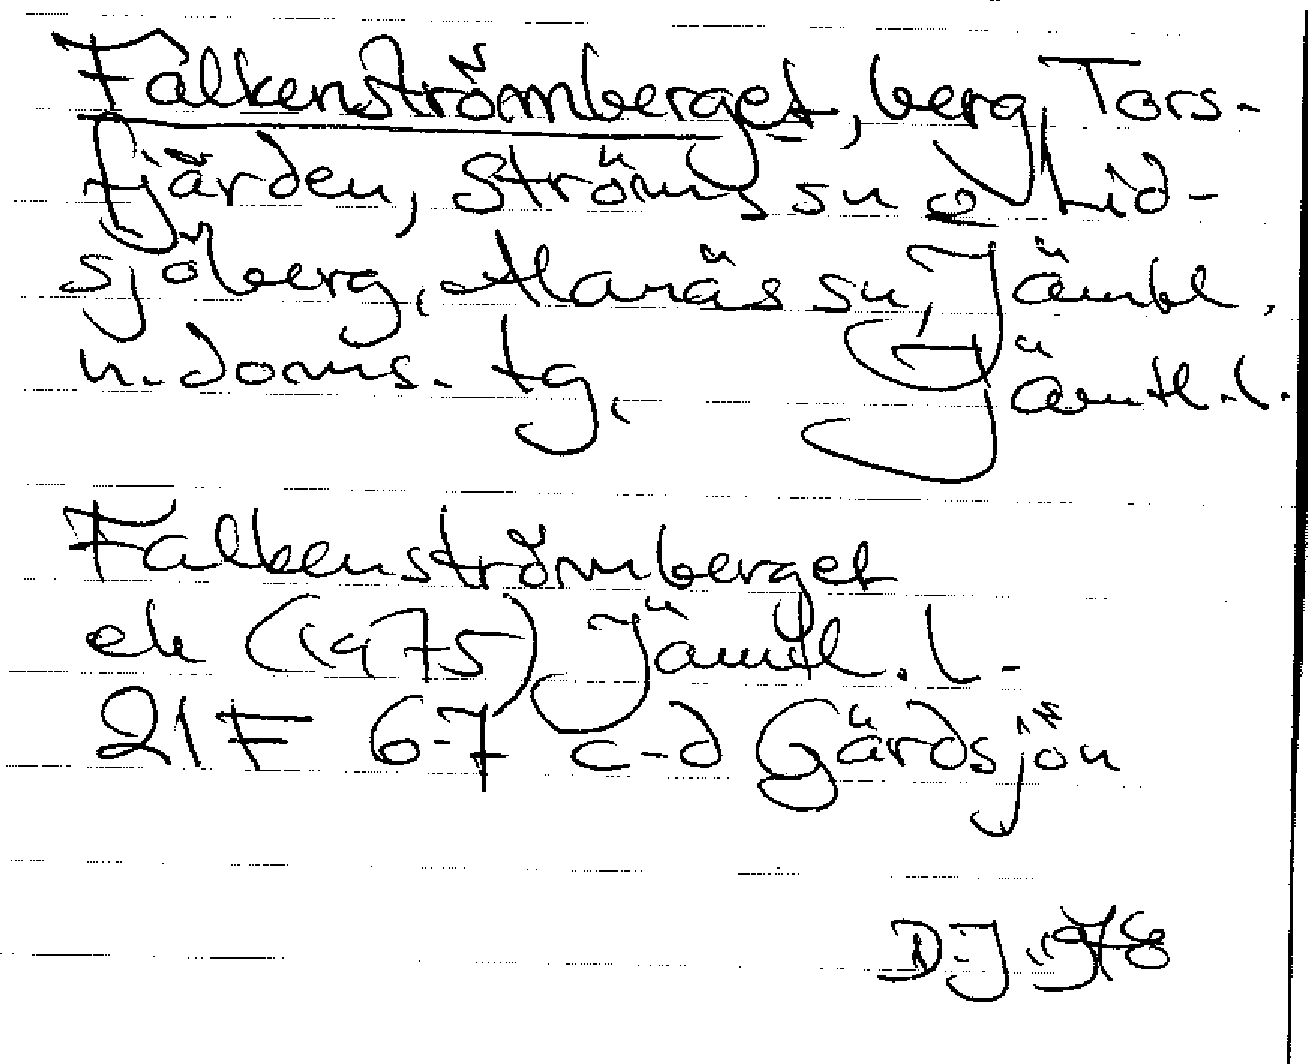 Falkenströmberget, berg, Tors-
fjärden, Ströms sn o Lid-
sjöberg, Alanäs sn, Jämtl.
n. doms. tg, Jämtl. l.
Falkenströmberget
ek (1975) Jämtl. l.
21 F 6-7 c-d Gärdsjön
DJ 1978